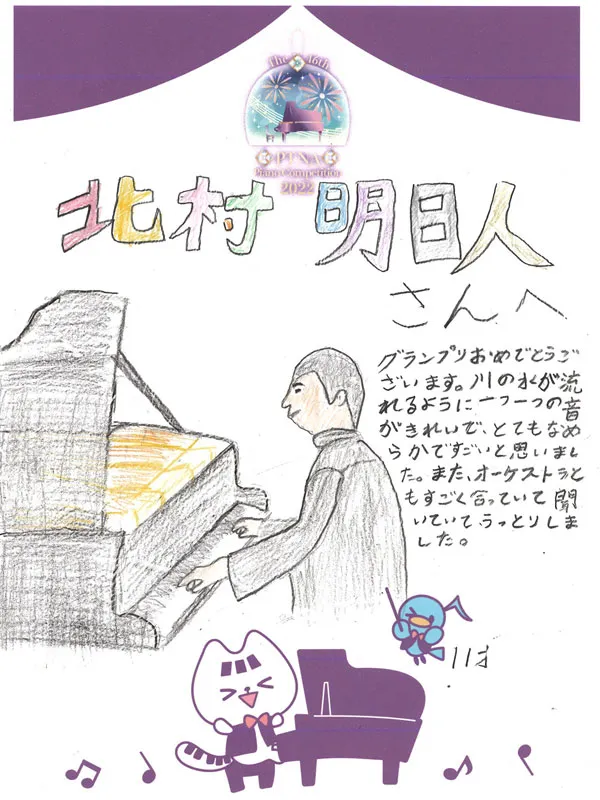 The 46th
PTNA
Piano Competition
2022
北村 明日人
さんへ
グランプリおめでとうご
ざいます。川の水が流
れるように一つ一つの音
がきれいで、とてもなめ
らかですごいと思いまし
た。また、オーケストラと
もすごく合っていて聞
いていて、うっとりしま
した。
11才